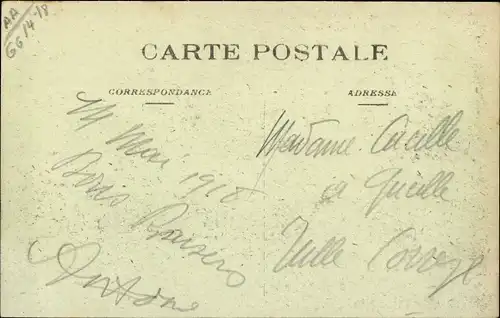 AA
GG/4-18
CARTE POSTALE
CORRESPONDANCE
ADRESSE
14 Mai 1918
Bons Baisers
Antoine
Madame
à
Tulle Corrèze